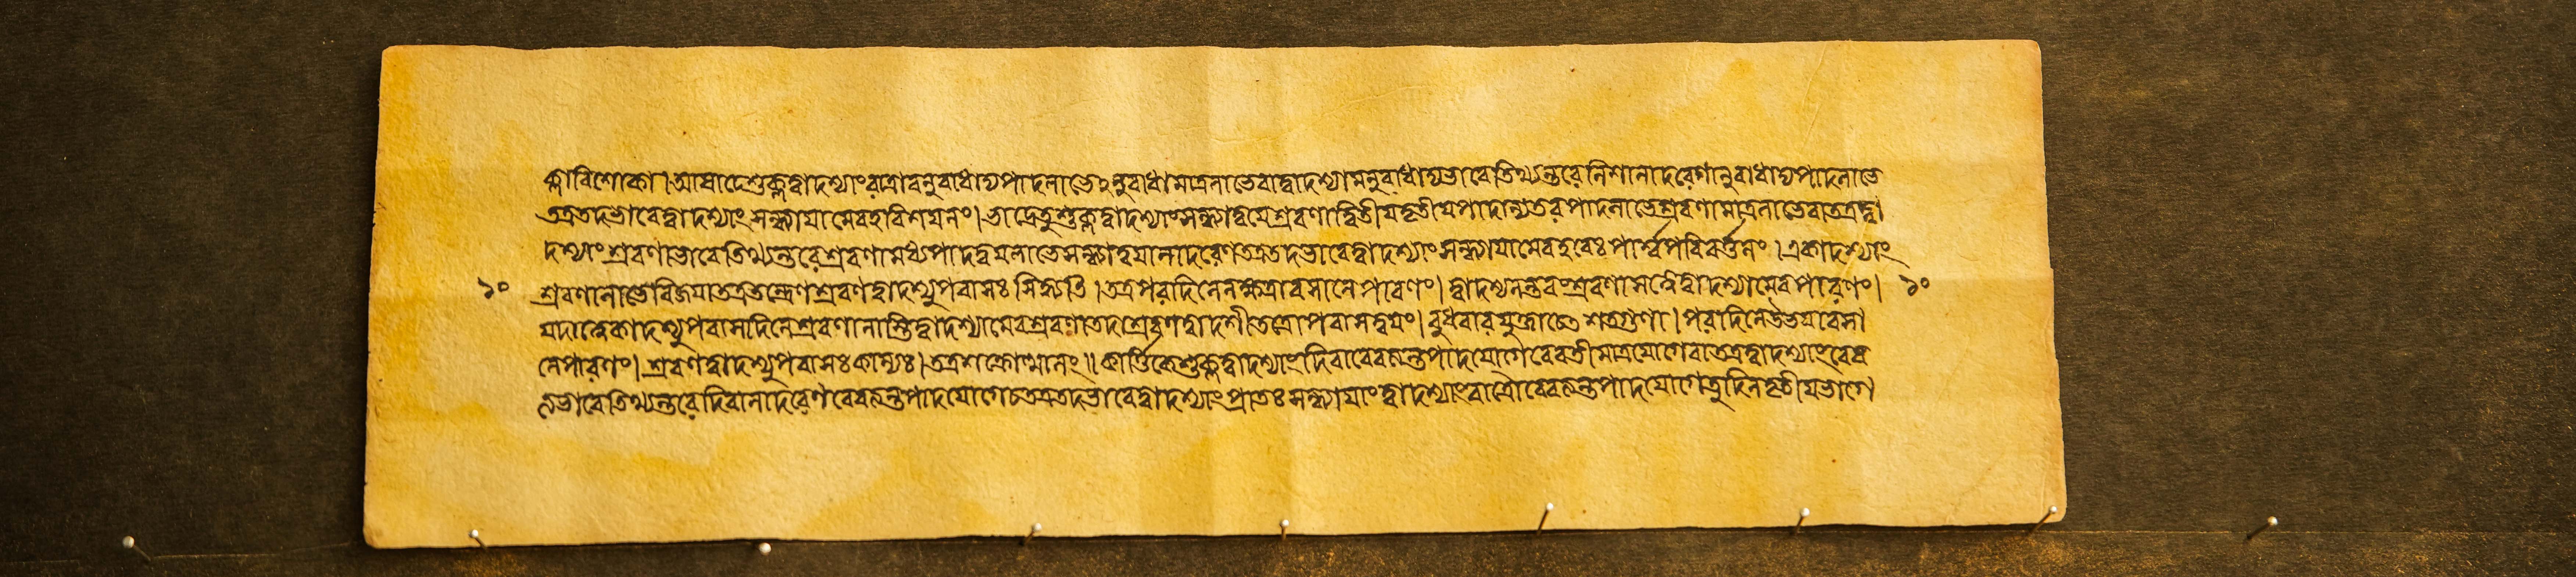 ক্লাবিশোকা। আষাঢেশুক্লদ্বাদশ্যাংরাত্রাবনুরাধাদ্যপাদলাভেঽনুরাধামাত্রলাভেবাদ্বাদশ্যামনুরাধাদ্যভাবেতিথ্যন্তরেনিশানাদরেণানুরাধাদ্যপাদলাভে
তত্রতদভাবেদ্বাদশ্যাং সন্ধ্যাযামেবহরিশযনং। ভাদ্রেতুশুক্লদ্বাদশ্যাংসন্ধ্যাদ্বযেশ্রবণাদ্বিতীযতৃতীযপাদান্যতরপাদলাভেশ্রবণামাত্রলাভেবাতত্রদ্বা
দশ্যাং শ্রবণাভাবেতিথ্যন্তরেশ্রবণামধ্যপাদদ্বযলাভেসন্ধ্যাদ্বযানাদরেণতত্রতদভাবেদ্বাদশ্যাং সন্ধ্যাযামেবহরেঃ পার্শ্বপরিবর্ত্তনং। একাদশ্যাং
১০ শ্রবণালাভেবিজযাতত্রতন্ত্রেণশ্রবণদ্বাদশ্যুপবাসঃ সিদ্ধ্যতি। তত্রপরাদিনেনক্ষত্রাবসানে পারণং। দ্বাদশ্যনন্তরংশ্রবণাসত্ত্বেদ্বাদশ্যামেবপারণং। ১০
যদাত্বেকাদশ্যুপবাসদিনেশ্রবণানাস্তিদ্বাদশ্যামেবশ্রবণাতদাশ্রবণদ্বাদশীতত্রোপবাসদ্বযং। বুধবারযুক্তাচেৎ শতগুণা। পরদিনেউভযাবসা
নেপারণং। শ্রবণদ্বাদশ্যুপবাসঃকাম্যঃ। তত্রশক্রোত্থানং॥ কার্ত্তিকেশুক্লদ্বাদশ্যাংদিবারেবত্যন্তপাদযোগেরেবতীমাত্রযোগেবাতত্রদ্বাদশ্যাংরেব
ত্যভাবেতিথ্যন্তরেদিবানাদরেণরেবত্যন্তপাদযোগেচতত্রতদভাবেদ্বাদশ্যাংপ্রাতঃ সন্ধ্যাযাংদ্বাদশ্যাংরাত্রৌরেবত্যন্তপাদযোগেতুদিনতৃতীযভাগে